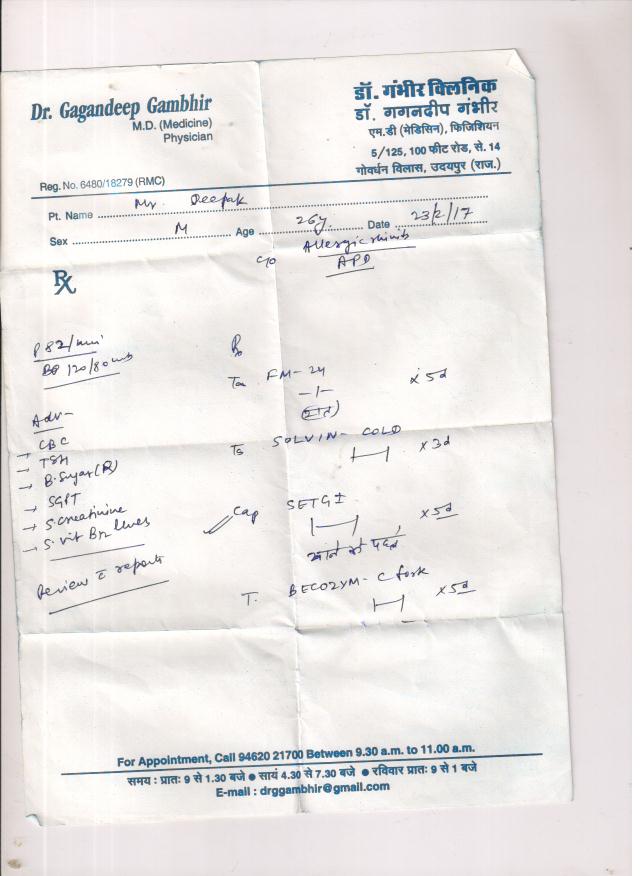 Dr. Gagandeep Gambhir
M.D. (Medicine)
Physician
Reg. No. 6480/18279 (RMC)
डॉ. गंभीर क्लिनिक
डॉ. गगनदीप गंभीर
एम.डी (मेडिसिन), फिजिशियन
5/125, 100 फीट रोड, से. 14
गोवर्धन विलास, उदयपुर (राज.)
Pt. Name Mr. Deepak
Sex M Age 26y. Date 23/2/17
c/o Allergic rhinitis
APD
Rx
P 82/min
BP 120/80
Adv-
→ CBC
→ TSH
→ B. Sugar (R)
→ SGPT
→ S. Creatinine
→ S. Vit B12 levels
Review c reports
Rx
FM-24 x 5d
-/-
SOLVIN-COLD x 3d
Cap SETGI x 5d
खाने के पहले
T. BECOZYM-C fort x 5d
For Appointment, Call 94620 21700 Between 9.30 a.m. to 11.00 a.m.
समय : प्रातः 9 से 1.30 बजे ● सायं 4.30 से 7.30 बजे ● रविवार प्रातः 9 से 1 बजे
E-mail : drggambhir@gmail.com